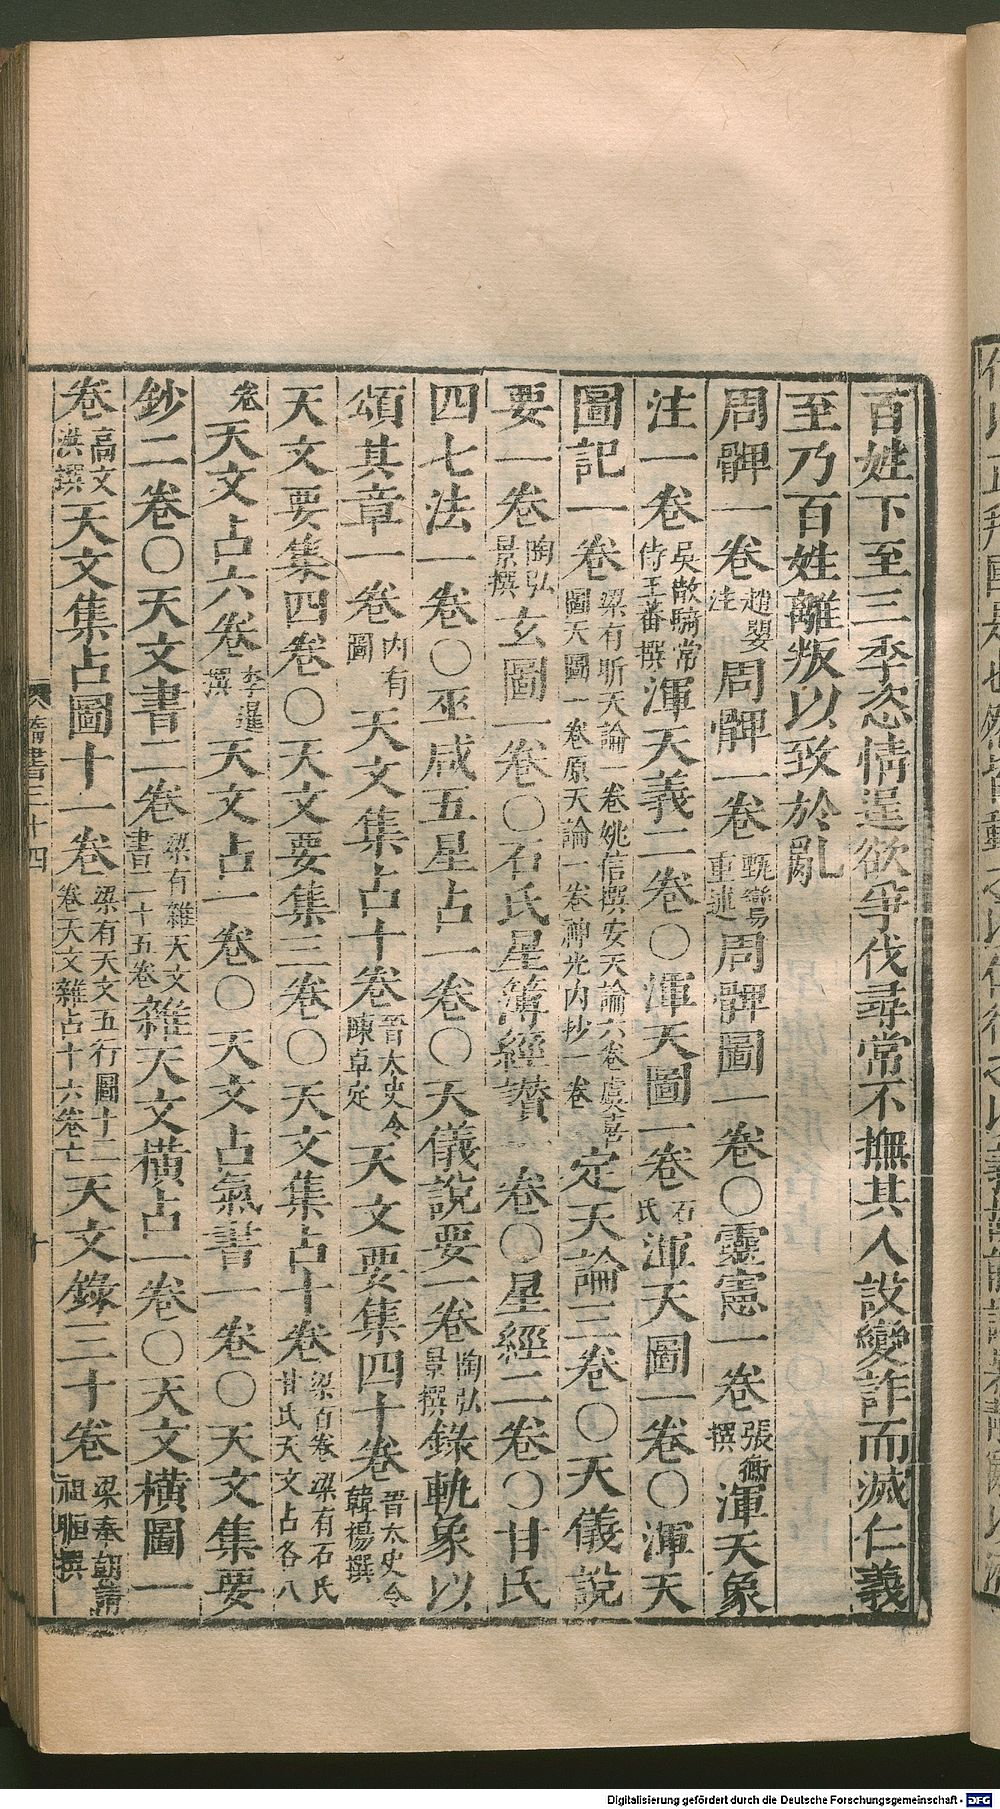 百姓下至三季恣情逞欲爭伐尋常不撫其人設變詐而滅仁義
至乃百姓離叛以致於亂
周髀一卷趙嬰注周髀一卷甄鸞重述周髀圖一卷〇靈憲一卷張衡撰渾天象
注一卷吳散騎常侍王蕃撰渾天義二卷〇渾天圖一卷石氏渾天圖一卷〇渾天
圖記一卷梁有昕天論一卷姚信撰安天論六卷虞喜圖天圖一卷原天論一卷神光內抄一卷定天論三卷〇天儀說
要一卷陶弘景撰玄圖一卷〇石氏星簿經讚一卷〇星經二卷〇甘氏
四七法一卷〇巫咸五星占一卷〇天儀說要一卷陶弘景撰錄軌象以
頌其章一卷內有圖天文集占十卷晉太史令陳卓定天文要集四十卷晉太史令韓楊撰
天文要集四卷〇天文要集三卷〇天文集占十卷梁百卷梁有石氏甘氏天文占各八
卷天文占六卷李暹撰天文占一卷〇天文占氣書一卷〇天文集要
鈔二卷〇天文書二卷梁有雜天文書二十五卷雜天文橫占一卷〇天文橫圖一
卷高文洪撰天文集占圖十一卷梁有天文五行圖十二卷天文雜占十六卷亡天文錄三十卷梁奉朝請祖暅撰
隋書三十四
十
Digitalisierung gefördert durch die Deutsche Forschungsgemeinschaft - DFG